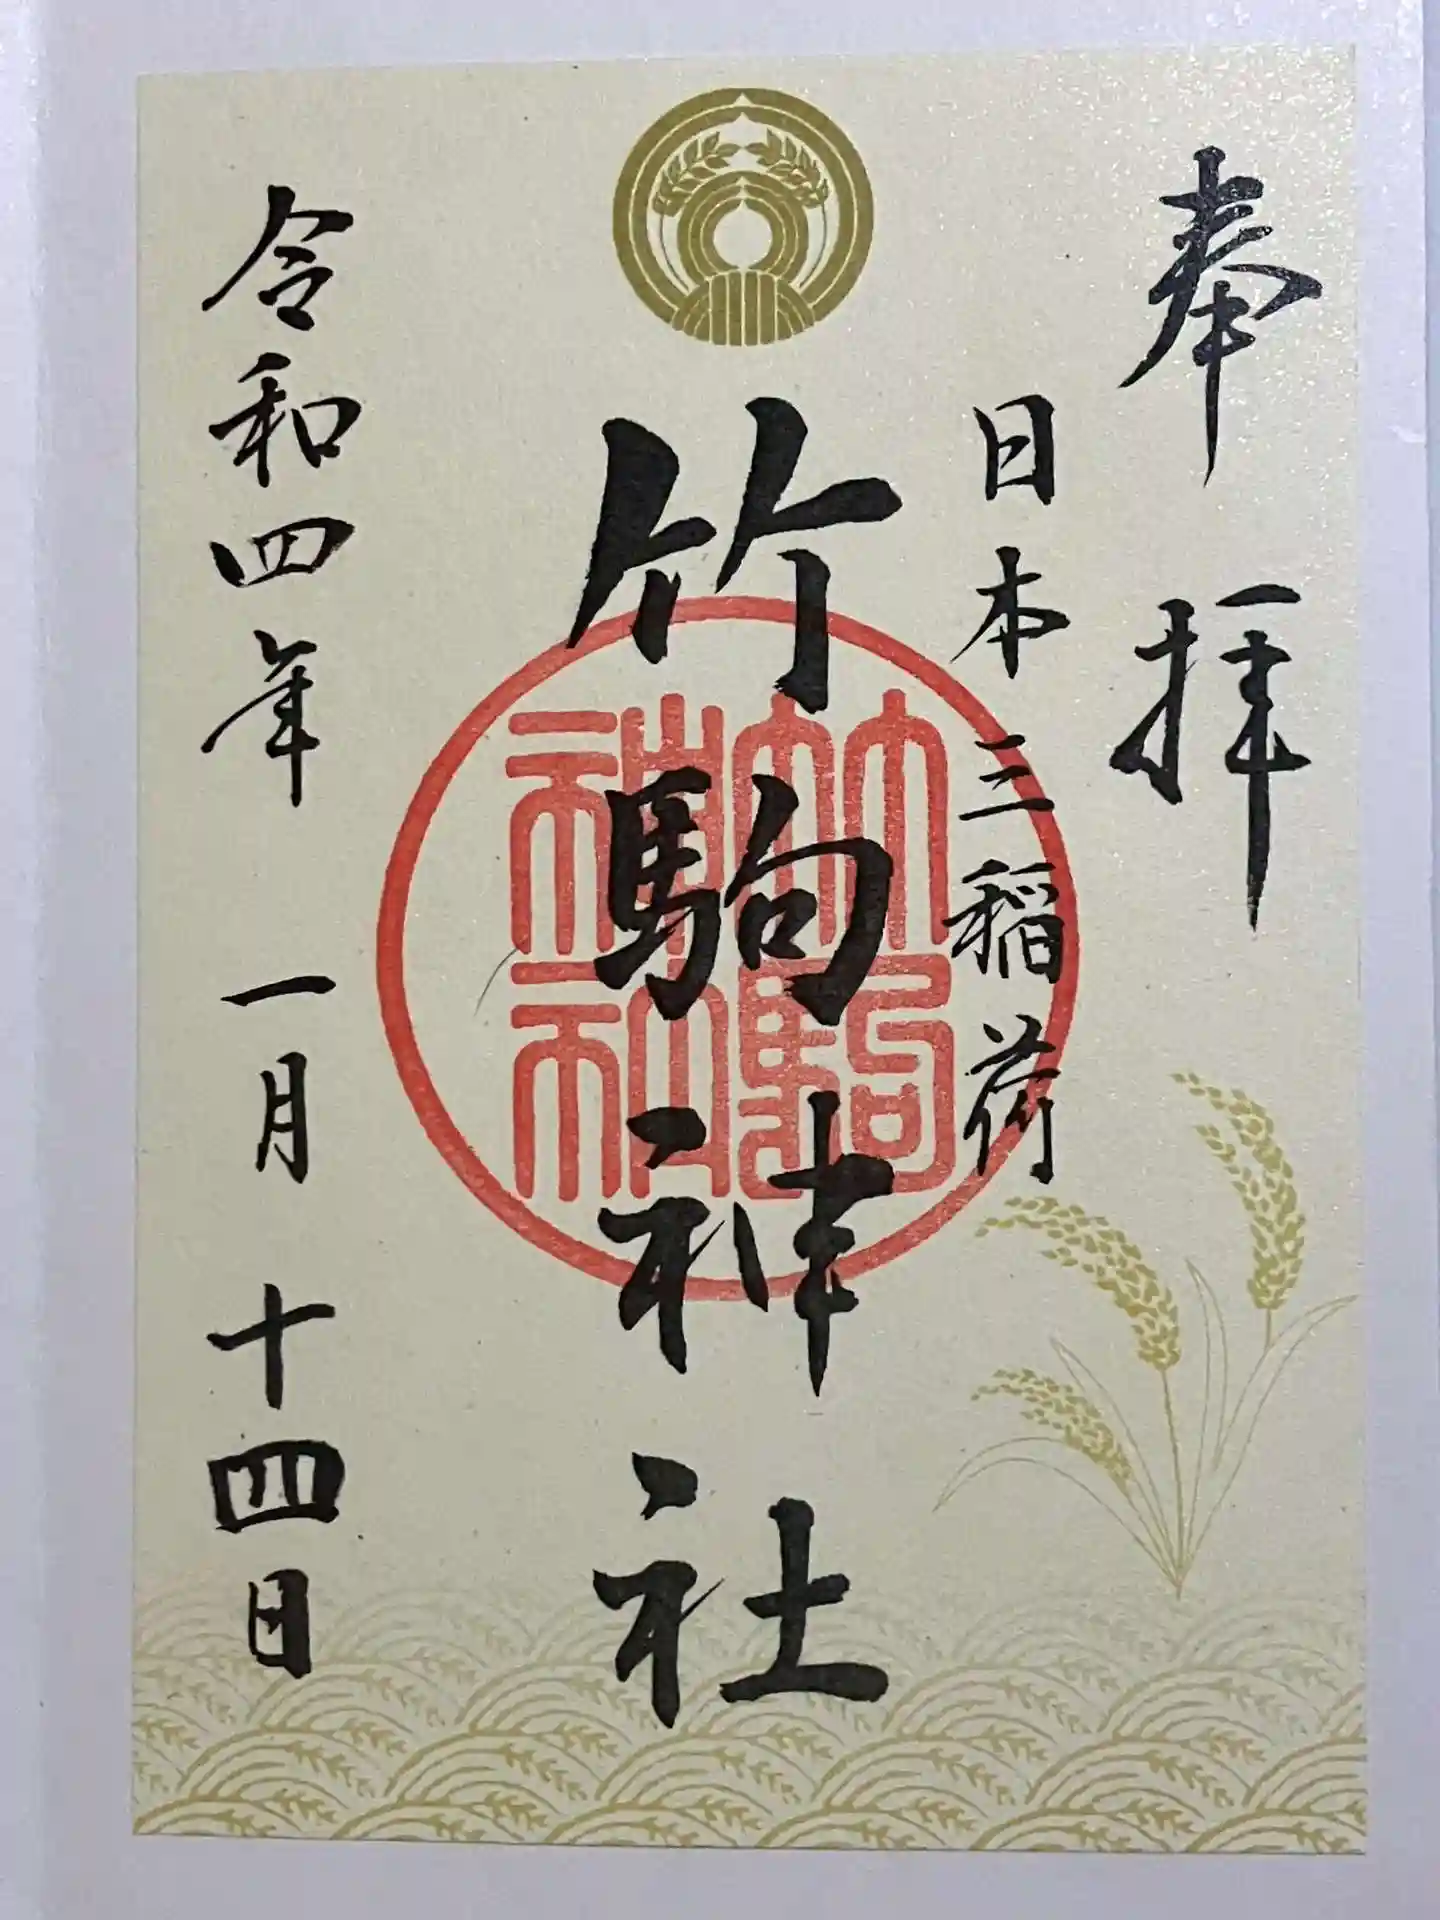 奉拝
日本三稲荷
竹駒神社
竹駒
神社
令和四年 一月 十四日